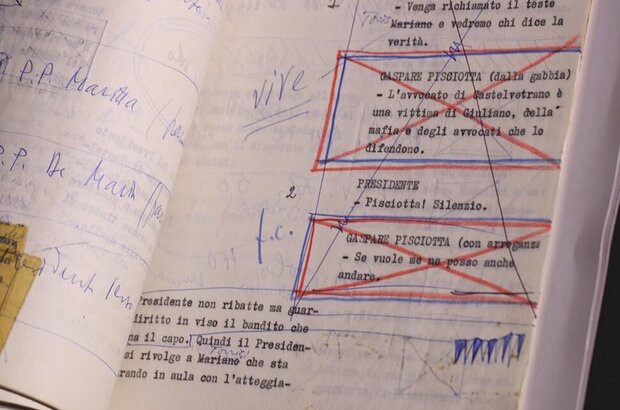 - Venga richiamato il teste
Mariano e vedremo chi dice la
verità.
vive
GASPARE PISCIOTTA (dalla gabbia)
- L'avvocato di Castelvetrano è
una vittima di Giuliano, della
mafia e degli avvocati che lo
difendono.
2
PRESIDENTE
- Pisciotta! Silenzio.
f.c.
GASPARE PISCIOTTA (con arroganza
- Se vuole me ne posso anche
andare.
residente non ribatte ma guar-
diritto in viso il bandito che
na il capo. Quindi il Presiden-
si rivolge a Mariano che sta
rando in aula con l'atteggia-
P.P. Marotta
P.P. De Marin